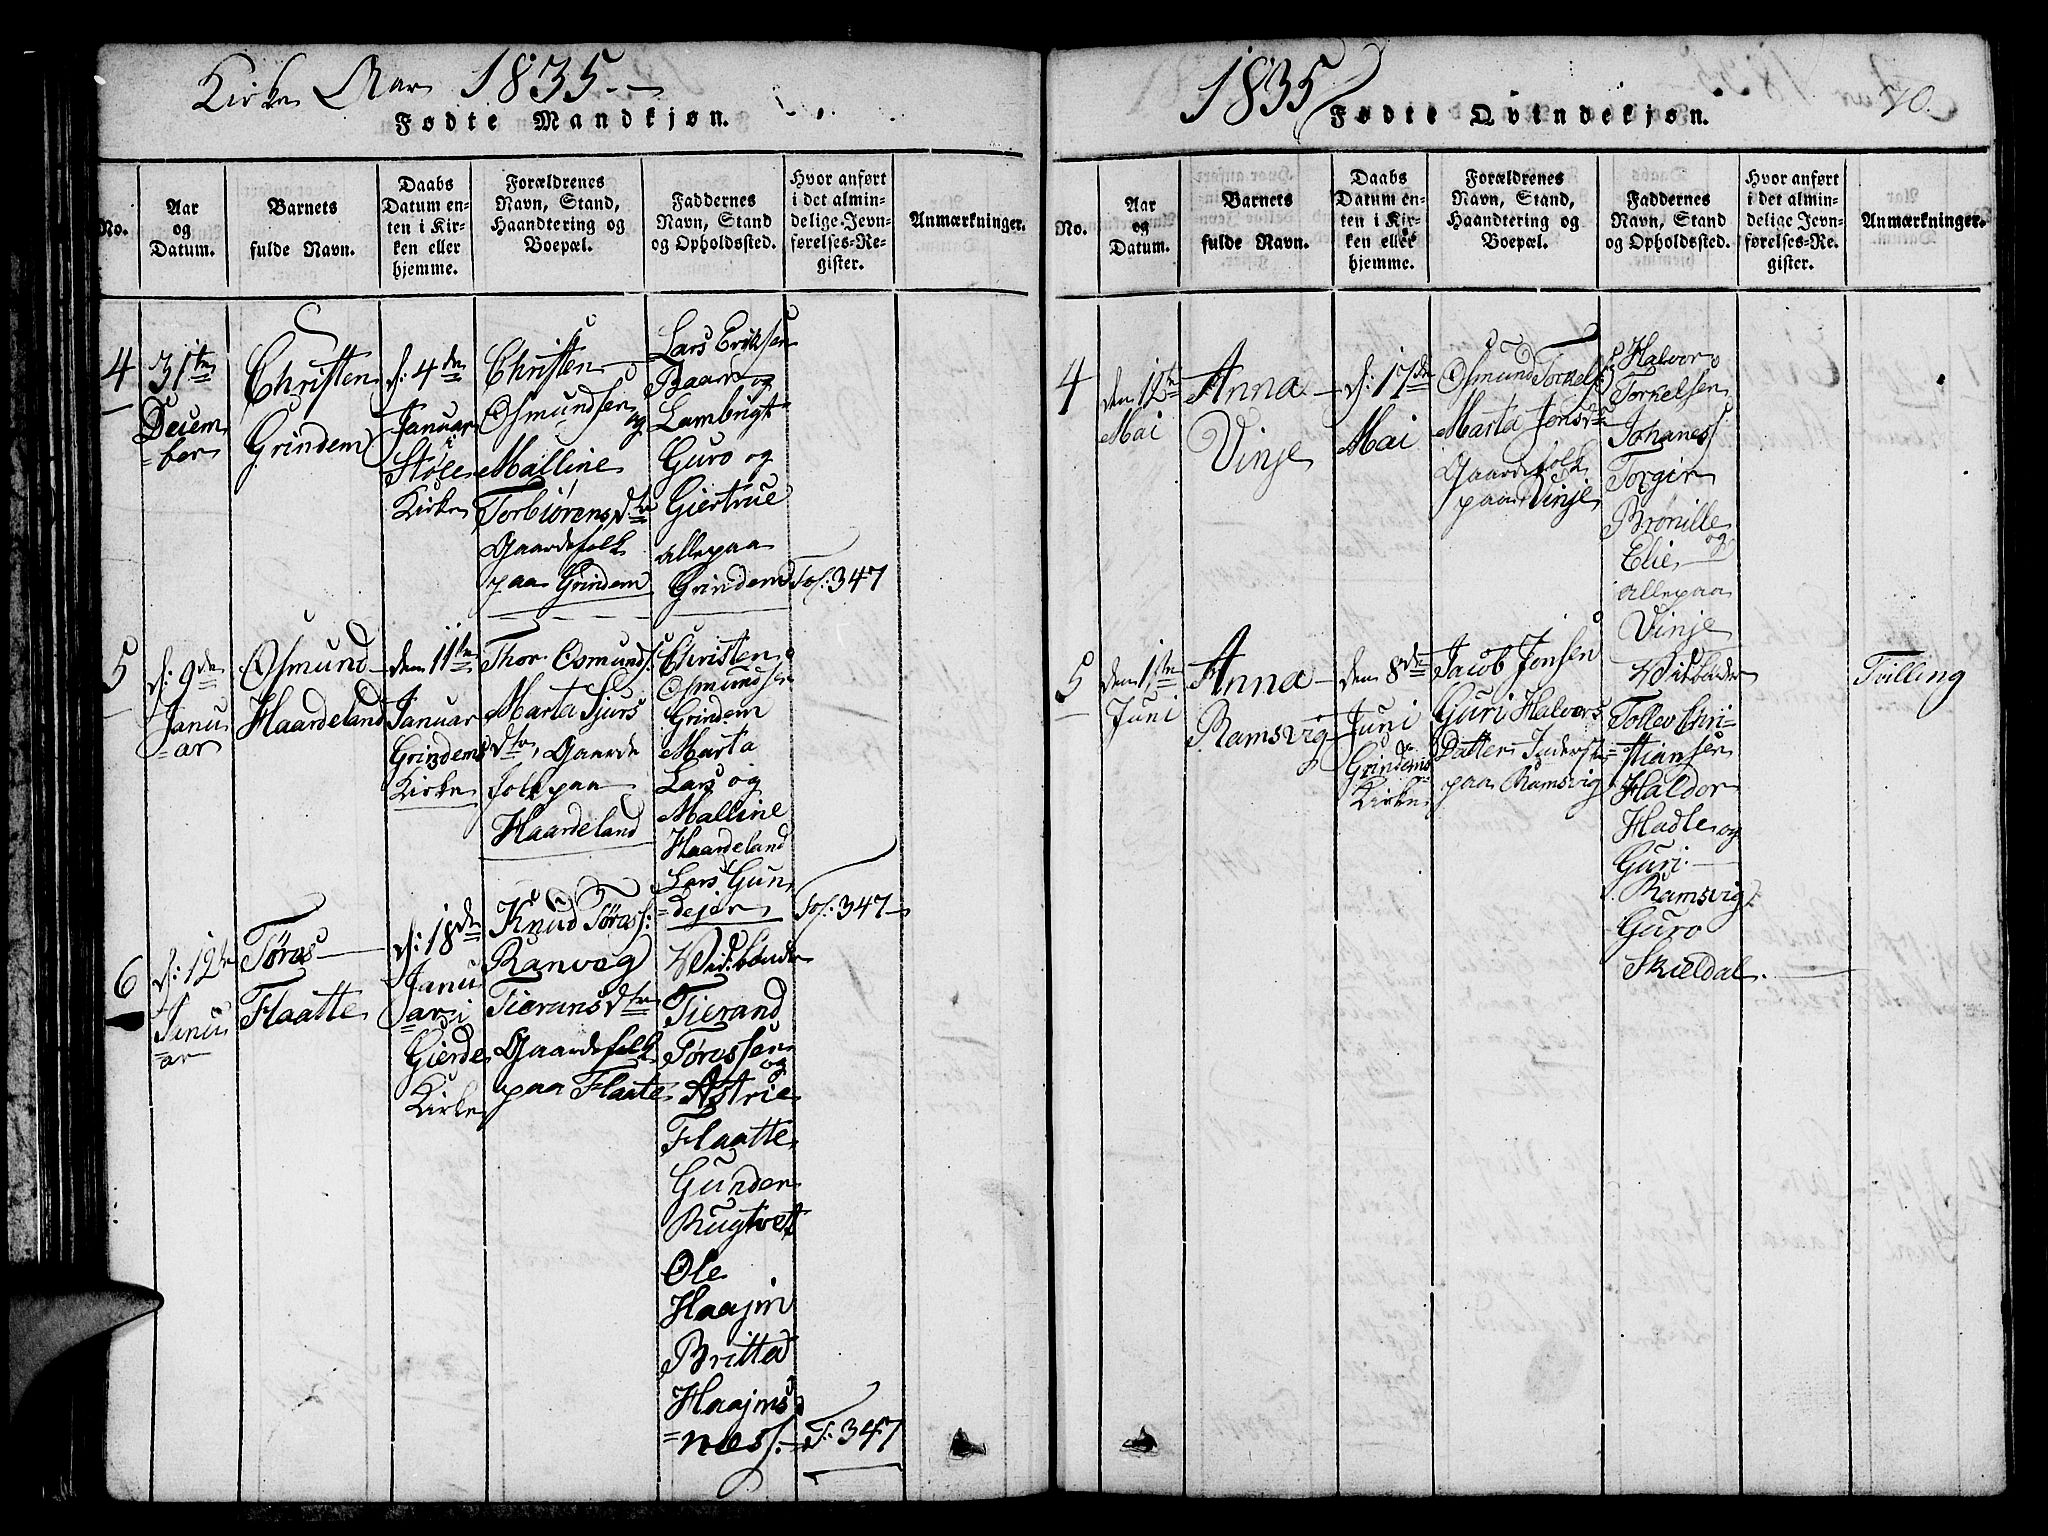 Kirke Aar 1835.
Fødte Mandkjøn.
No.
Aar
og
Datum.
Barnets
fulde Navn.
Daabs
Datum en-
ten i Kir-
ken eller
hjemme.
Forældrenes
Navn, Stand,
Haandtering og
Boepæl.
Faddernes
Navn, Stand
og Opholdssted.
Hvor anført
i det almin-
delige Jevn-
førelses-Re-
gister.
Anmærkninger.
4
31te
Decem
ber
Christen
Grindem
d: 4de
Januar
i
Støle
Kirke
Christen
Osmundsen
og
Malline
Torbiørensdtr
Gaardefolk
paa Grindem
Lars Eriksen
Baar og
Lambrigt
Guro og
Giertrue
alle paa
Grindem
Fol: 347
5
d: 9de
Janu
ar
Osmund
Haardeland
den 11te
Januar
Grindems
Kirke
Thor Osmunds:
Marta Sjurs
dtr, Gaarde
folk paa
Haardeland
Christen
Osmundsen
Grindem
Marta
Lars og
Malline
Haardeland
Lars Gun
dejer
Fol: 347
6
d: 12te
Janu
ar
Tøros
Flaatte
d: 18de
Janu
ar i
Gierde
Kirke
Knud Tøros:
Ranveg
Tieransdtr
Gaardefolk
paa Flaate
Vidr bender
Tierand
Tørossen
og
Astrie
Flaatte
Gunder
Rugtvet
Ole
Haajm
Britta
Haajms
næs:
F: 347
1835
Fødte Qvindekjøn.
70.
No.
Aar
og
Datum.
Barnets
fulde Navn.
Daabs
Datum en-
ten i Kir-
ken eller
hjemme.
Forældrenes
Navn, Stand,
Haandtering og
Boepæl.
Faddernes
Navn, Stand
og Opholdssted.
Hvor anført
i det almin-
delige Jevn-
førelses-Re-
gister.
Anmærkninger.
4
den 12te
Mai
Anna
Vinje
d: 17de
Mai
Osmund Torkels:
Marta Jonsdtr
Gaardefolk
paa Vinje
Halvor
Torkelsen
Johanes
Torgir
Brønille
og
Elie
alle paa
Vinje
5
den 1ste
Juni
Anna
Ramsvig
den 8de
Juni
Grindems
Kirke
Jacob Jonsen
Guri Halvors
Datter Inderste
paa Ramsvig
Tollev Chri
stiansen
Haldor
Hadle og
Guri
Ramsvig
Guro
Skieldal
Tvilling